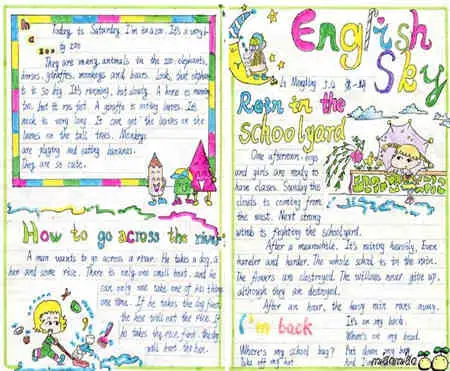 In a zoo
Today is Saturday. I'm in a zoo. It's a very
big zoo
They are many animals in the zoo. elephants,
horses, giraffes, monkeys and bears. Look, that elephant
is so big. It's running, but slowly. A horse is running
too, but it runs fast. A giraffe is eating leaves. It's
neck is very long. It can get the leaves on the
leaves on the tall trees. Monkeys
are playing and eating bananas.
They are so cute.
How to go across the river
A man wants to go across a river. He takes a dog, a
hen and some rice. There is only one small boat, and he
can only take one of his things
one time. If he takes the dog first,
the hen will eat the rice. If
he takes the rice first, the dog
will hurt the hen.
English
Sky
By Mengting
Rain in the
schoolyard
One afternoon, boys
and girls are ready to
have classes. Sunday the
clouds is coming from
the west. Next strong
wind is fighting the schoolyard.
After a meanwhile. It's raining heavily. Even
harder and harder. The whole school is in the rain.
The flowers are destroyed. The willows never give up,
although they are destroyed.
After an hour, the heavy rain runs away.
I'm back
Where's my school bag?
Take off my hat
It's on my back.
Where's on my head.
Put down my bag
And I'm